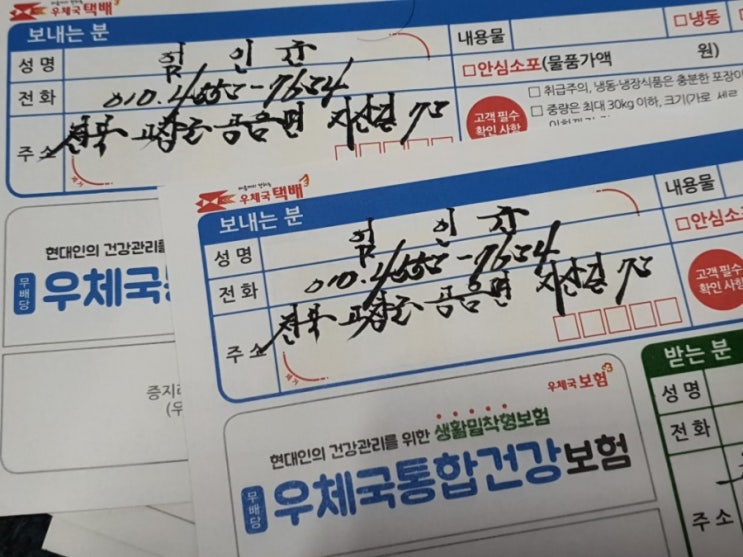 우체국 택배
보내는 분
내용물
냉동
성명
인
안심소포(물품가액 원)
전화 010.4553-7654
취급주의, 냉동·냉장식품은 충분한 포장
중량은 최대 30kg 이하, 크기(가로 세로
고객 필수
확인 사항
주소 전북 고창군 공음면
우체국 택배
보내는 분
내용물
성명
인
안심소포
전화 010.4553-7654
고객 필수
확인 사항
주소 전북 고창군 공음면
현대인의 건강관리를
무배당
우체국통
증지
(우
받는 분
성명
전화
주소
우체국 보험
현대인의 건강관리를 위한 생활밀착형보험
무배당
우체국통합건강보험